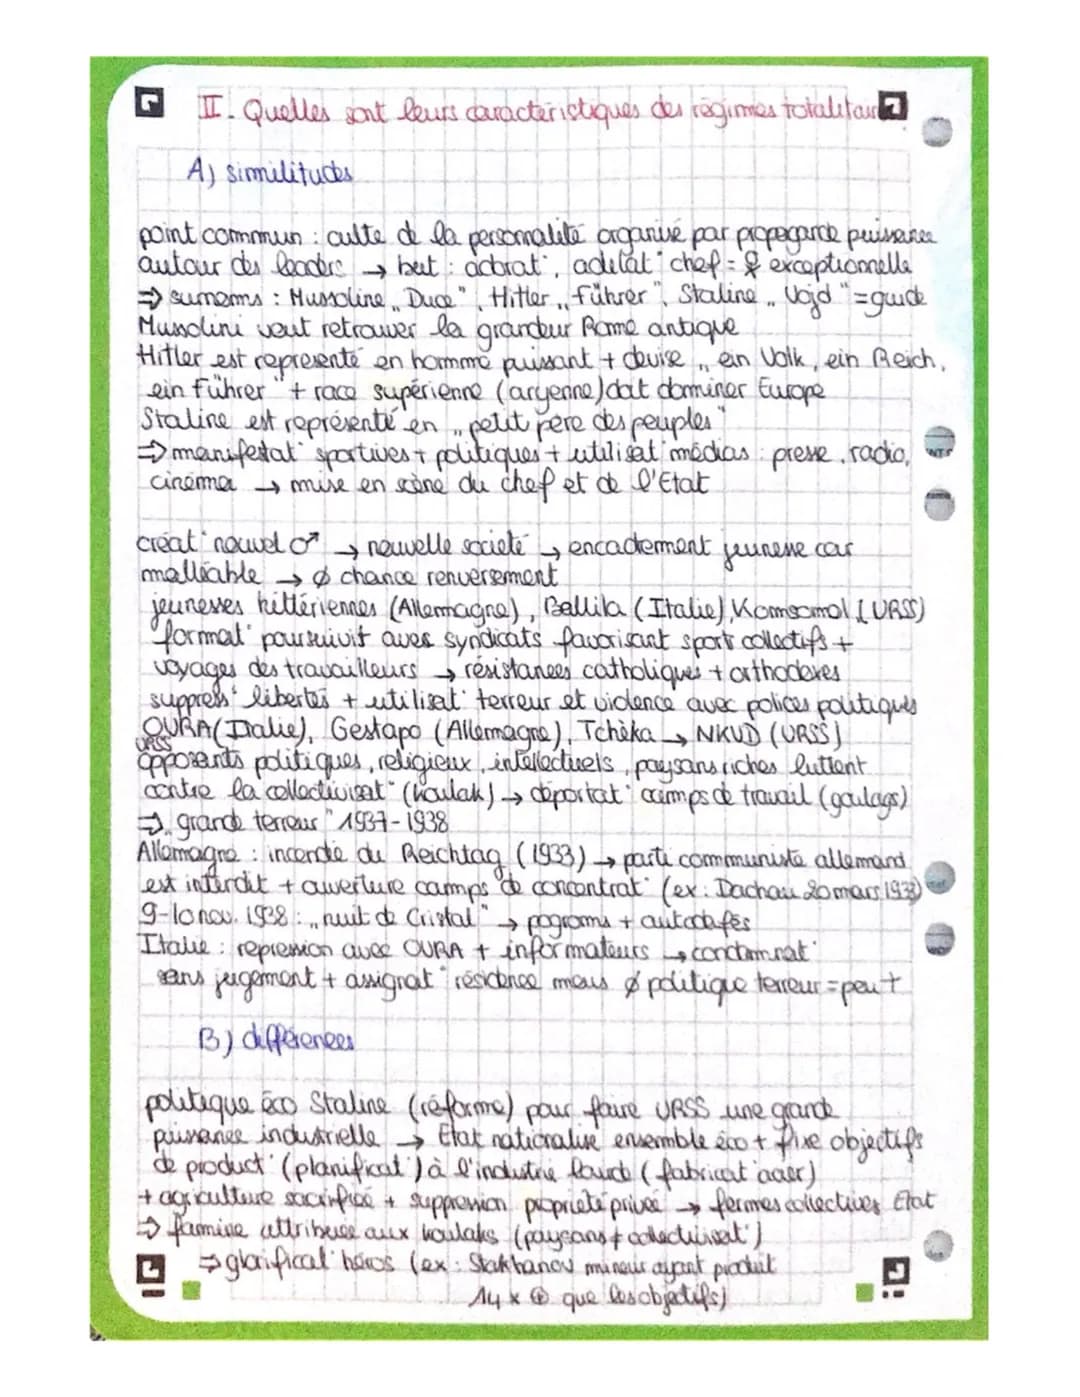 II. Quelles sont leurs caractéristiques des régimes totalitair
A) similitudes
point commun : culte de la personnalité organisé par propagande puissance
autour des leaders → but : adorat°, adulat° chef = exceptionnelle
⇒ surnoms : Mussoline „Duce", Hitler „Führer", Staline „Vojd" = guide
Mussolini veut retrouver la grandeur Rome antique
Hitler est représenté en homme puissant + devise „ein Volk, ein Reich,
ein Führer" + race supérienne (aryenne) doit dominer Europe
Staline est représenté en „petit père des peuples"
⇒ manifestat° sportives + politiques + utilisat° médias : presse, radio,
cinéma → mise en scène du chef et de l'Etat
créat° nouvel ♂ → nouvelle société → encadrement jeunesse car
malléable → ø chance renversement
jeunesses hitlériennes (Allemagne), Ballila (Italie), Komsomol (URSS)
format° poursuivit avec syndicats favorisant sport collectifs +
voyages des travailleurs → résistances catholiques + orthodoxes
suppress° libertés + utilisat° terreur et violence avec polices politiques
OVRA (Italie), Gestapo (Allemagne), Tchéka → NKVD (URSS)
URSS
opposants politiques, religieux, intellectuels, paysans riches luttent
contre la collectivisat° (koulak) → déportat° camps de travail (goulags)
⇒ „grande terreur" 1937-1938
Allemagne : incendie du Reichtag (1933) → parti communiste allemand
est interdit + ouverture camps de concentrat° (ex : Dachau 20 mars 1933)
9-10 nov. 1938 : „nuit de Cristal" → pogroms + autodafés
Italie : répression avec OVRA + informateurs → condamnat°
sans jugement + assignat° résidence mais ø politique terreur = peu +
B) différences
politique éco Staline (réforme) pour faire URSS une grande
puissance industrielle → Etat nationalise ensemble éco + fixe objectifs
de product° (planificat°) à l'industrie lourde (fabricat° acier)
+ agriculture sacrifiée + suppression propriété privée → fermes collectives Etat
⇒ famine attribuée aux koulaks (paysans ≠ collectivisat°)
⇒ glorificat° héros (ex : Stakhanov mineur ayant produit
14 x ⊕ que les objectifs)